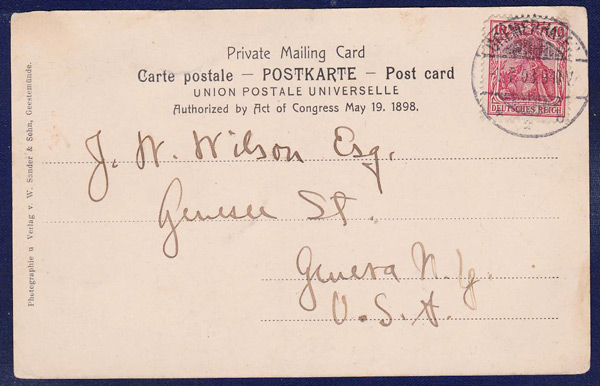 Private Mailing Card
Carte postale — POSTKARTE — Post card
UNION POSTALE UNIVERSELLE
Authorized by Act of Congress May 19. 1898.
10 10
DEUTSCHES REICH
BREMERHAVEN
J. W. Wilson Esq.
Genesee St.
Geneva N.Y.
U.S.A.
Photographie u Verlag v. W. Sander & Sohn, Geestemünde.